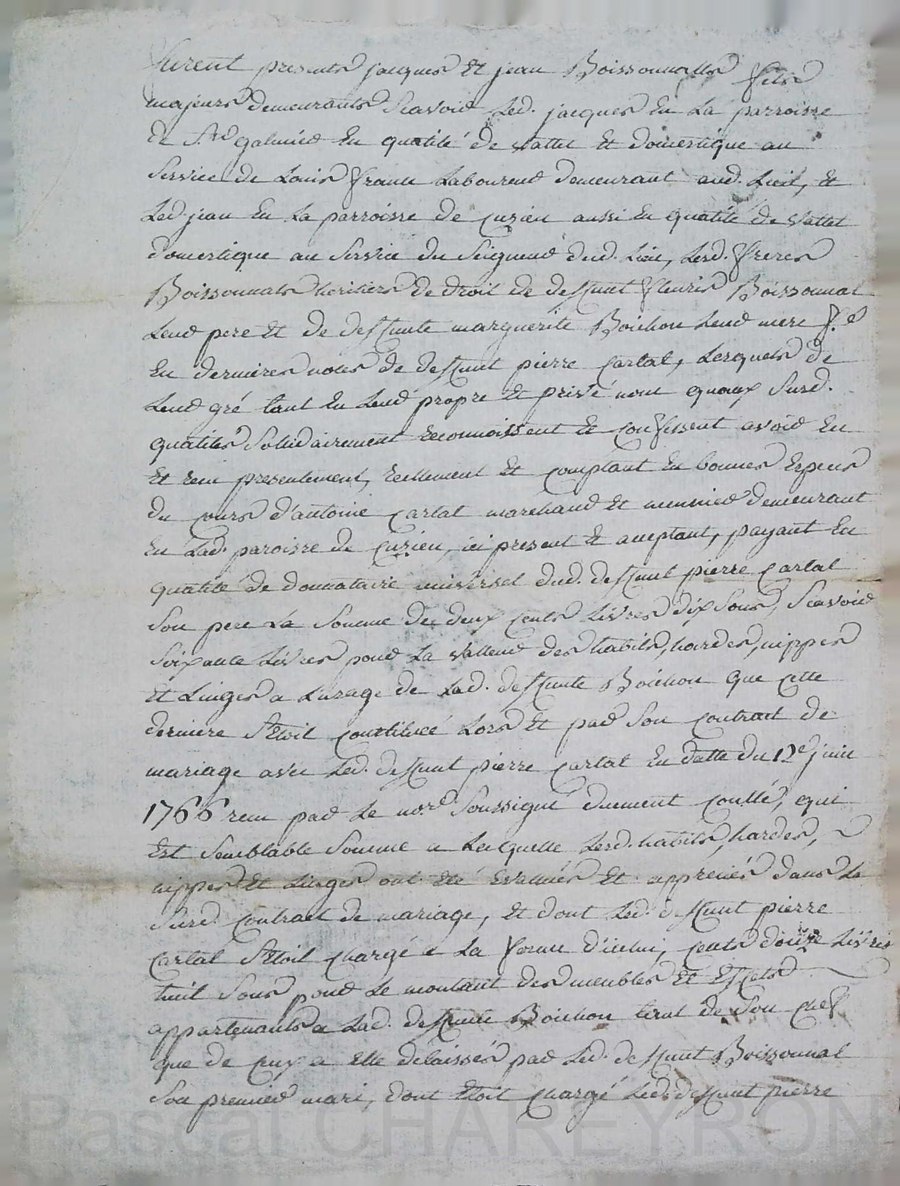 furent presents jacques et jean Boissonnats freres
majeurs demeurants scavoir led. jacques en la parroisse
de St galmier en qualité de vallet et domestique au
service de Louis france laboureur demeurant aud. lieu, et
led jean en la parroisse de cuzieu aussi en qualité de vallet
domestique au service du seigneur dud. lieu, lesd. freres
Boissonnats heritiers de droit de deffunt fleuris Boissonnat
leur pere et de deffunte marguerite Boichon leur mere
en dernieres notes de deffunt pierre cartal, lesquels de
leur gré tant en leur propre et privé nom quaux susd.
qualités solidairement reconnoissent et confessent avoir eu
et recu presentement, reellement et comptant en bonnes especes
du cours d'antoine cartal marchand et meunier demeurant
en lad. paroisse de cuzieu, ici present et aceptant, payant en
qualité de donnataire universel dud. deffunt pierre cartal
son pere la somme de deux cents livres dix sous, scavoir
soixante livres pour la valleur des habits, hardes, nippes
et linges a l'uzage de lad. deffunte Boichon que cette
derniere s'etoit constituée lors et par son contrat de
mariage avec led. deffunt pierre cartal en datte du 12e juin
1766 recu par le nore. soussigné duement conllé, qui
est semblable somme a lacquelle lesd. habits, hardes,
nippes et linges ont eté estimés et appreciés dans le
susd. contrat de mariage, et dont led. deffunt pierre
cartal s'etoit chargé a la forme d'icelui, cents douze livres
huit sous pour le montant des meubles et effets
appartenants a lad. deffunte Boichon tant de son chef
que de ceux a elle delaissés par led. deffunt Boissonnat
son premier mari, dont etoit chargé led. deffunt pierre
Pascal CHAREYRON